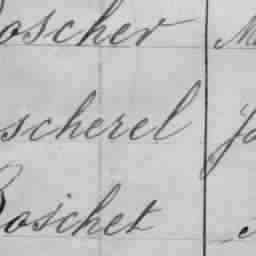 oscher M
scherel Ja
Boschet